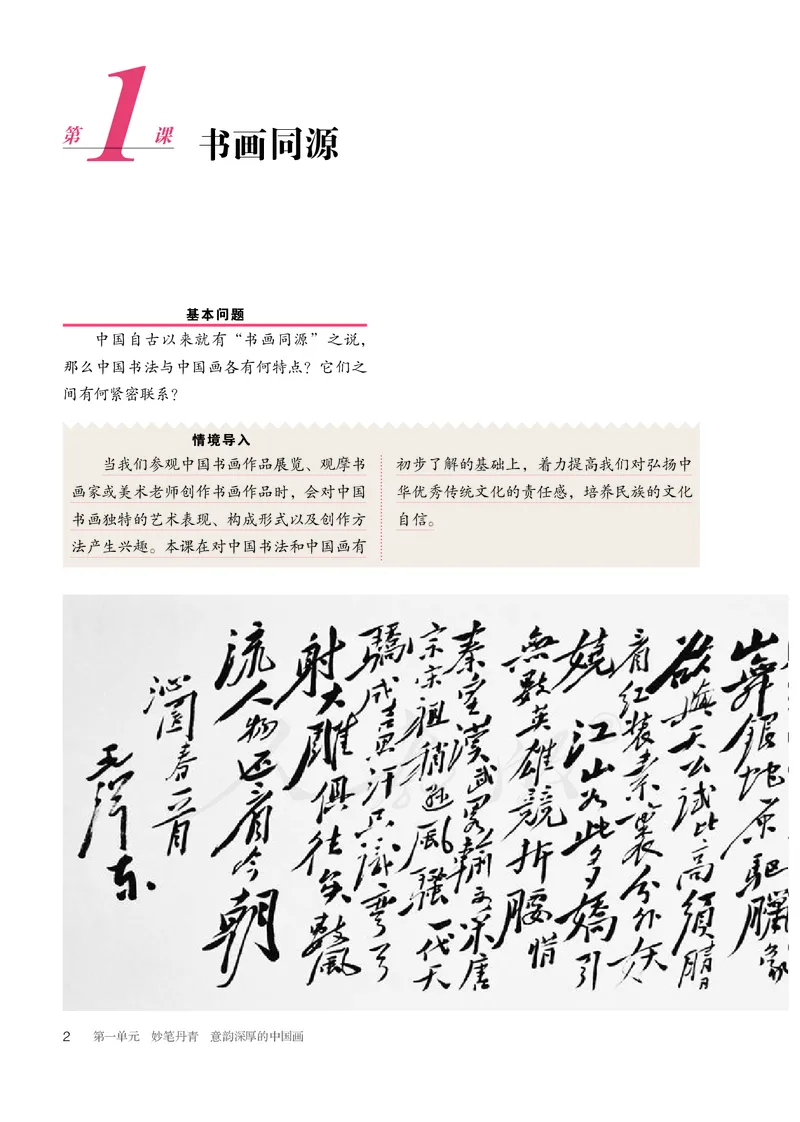 第1课 书画同源
基本问题
中国自古以来就有“书画同源”之说，
那么中国书法与中国画各有何特点？它们之
间有何紧密联系？
情境导入
当我们参观中国书画作品展览、观摩书
画家或美术老师创作书画作品时，会对中国
书画独特的艺术表现、构成形式以及创作方
法产生兴趣。本课在对中国书法和中国画有
初步了解的基础上，着力提高我们对弘扬中
华优秀传统文化的责任感，培养民族的文化
自信。
山舞銀蛇原驅臘象
欲與天公試比高須晴
看紅裝素裹分外妖
嬈江山如此多嬌引
無數英雄競折腰惜
秦皇漢武略輸文采唐
宗宋祖稍遜風騷一代天
驕成吉思汗只識彎弓
射大雕俱往矣數風
流人物还看今朝
沁园春一首
毛澤东
2 第一单元 妙笔丹青 意韵深厚的中国画